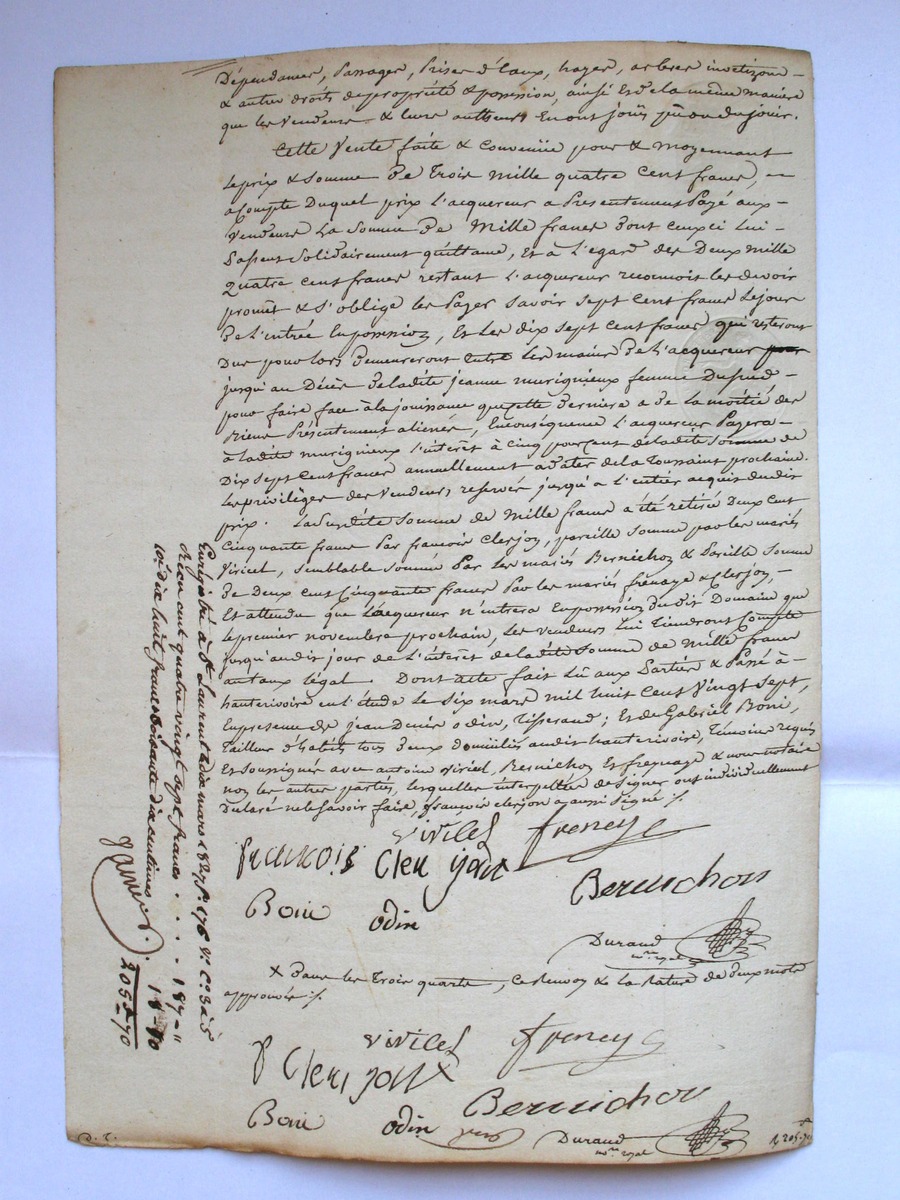 Dépendances, Passages, Prises d'Eaux, hayes, arbres
& autres droits de propriété & possession, ainsi Et de la même maniere
que les Vendeurs & leurs autheurs En ont joüi pû ou du joüir.
Cette Vente faite & Convenüe pour & moyennant
Le prix & Somme De Trois Mille quatre Cent francs,
a Compte Duquel prix L'acquereur a Présentement Payé aux
Vendeurs La Somme De Mille francs dont ceux ci Lui
Passent Solidairement quittance, Et a L'egard des Deux Mille
Quatre cent francs restant L'acquereur reconnoit les devoir
promet & S'oblige les Payer Savoir Sept Cent francs Le jour
De L'entrée En possession, Et Les dix Sept Cent francs qui resteront
Dus pour lors Demeureront Entre Les mains De L'acquereur
jusqu'au Décès De ladite jeanne murigneux femme
pour faire face à la jouissance que cette derniere a de La moitié des
Biens Présentement aliénés, En conséquence L'acquereur Payera
à ladite murigneux L'intérêt à Cinq pour Cent de ladite Somme de
Dix Sept Cent francs annuellement a dater de la Toussaint prochaine.
Les privilèges des Vendeurs reservés jusqu'a L'entier acquis dudit
prix. La Susdite Somme de Mille francs a été retirée Deux Cent
Cinquante francs Par françois Clerjon, pareille Somme par les mariés
Viricel, Semblable Somme Par Les mariés Bernichon & Pareille Somme
De Deux Cent Cinquante francs Par les mariés frenaye & Clerjon,
Et attendu que L'acquereur n'entrera En possession du dit Domaine que
Le premier novembre prochain, Les vendeurs Lui Tiendront Compte
jusqu'audit jour de L'intérêt de ladite Somme de Mille francs
au taux légal. Dont acte fait Lû aux Parties & Passé à
hauterivoire en l'étude Le Six mars mil huit Cent Vingt Sept,
En présence De jean Denis odin, Tisserand; Et de Gabriel Boni,
Tailleur d'habits tous Deux domiciliés audit hauterivoire, Témoins requis
Et Soussignés avec antoine Viricel, Bernichon Et frenaye & nous notaire
non les autres parties, Lesquelles interpellées de Signer ont individuellement
Declaré ne le Savoir faire, françois clerjon a aussi Signé ./.
viricel freney
francois Clerijont
Bernichon
Boni odin
Durand
nre royal
X dans les Trois quarts, Ce renvoy & la Rature de Deux mots
approuvés ./.
viricel freney
f Clerijont
Bernichon
Boni odin
Durand
nre royal
Enrégistré à St Laurent le dix mars 1827 fo. 176 Vo. Cs 3 à 5
Recu cent quatre vingt sept francs . . . 187 - "
10e dix huit francs soixante dix centimes . 18 - 70
205 - 70
D. T.